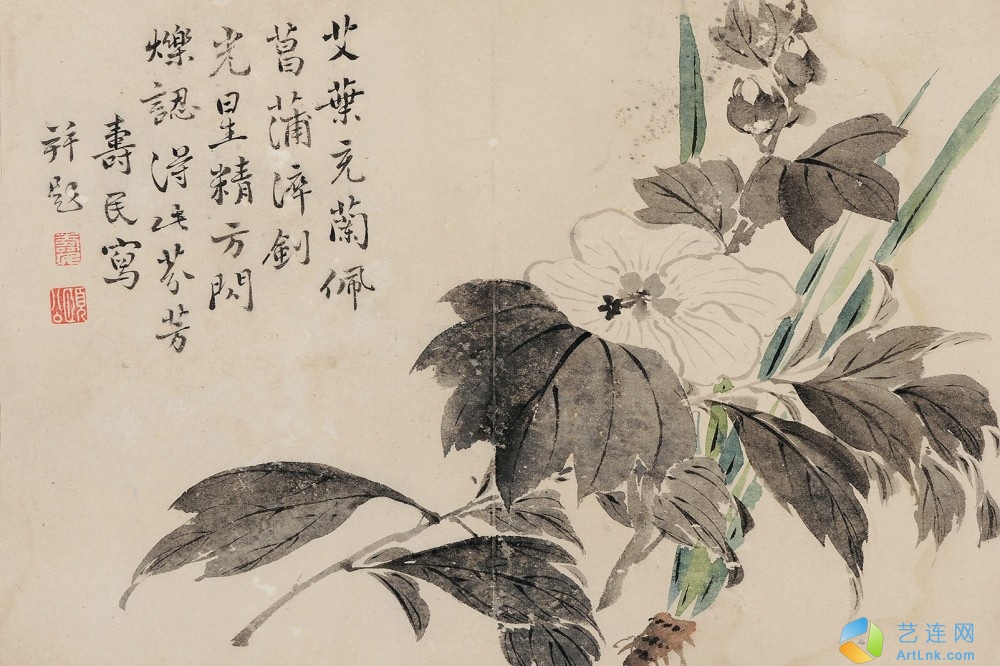 艾葉充蘭佩
菖蒲淬劍
光星精方閃
爍認得此芬芳
壽民寫
并題
壽民
頤公
艺连网
ArtLnk.com